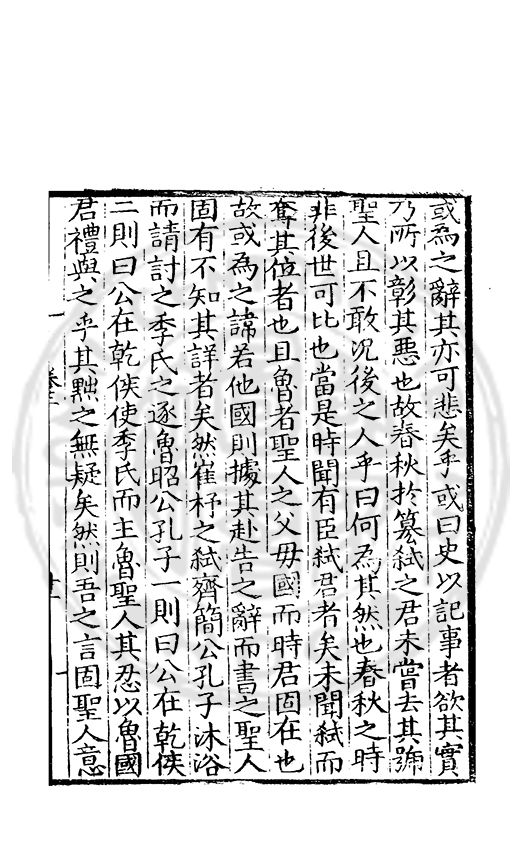 或為之辭其亦可悲矣乎或曰史以記事者欲其實
乃所以彰其惡也故春秋於篡弑之君未嘗去其號
聖人且不敢况後之人乎曰何為其然也春秋之時
非後世可比也當是時聞有臣弑君者矣未聞弑而
奪其位者也且魯者聖人之父母國而時君固在也
故或為之諱若他國則據其赴告之辭而書之聖人
固有不知其詳者矣然崔杼之弑齊簡公孔子沐浴
而請討之季氏之逐魯昭公孔子一則曰公在乾侯
二則曰公在乾侯使季氏而主魯聖人其忍以魯國
君禮與之乎其黜之無疑矣然則吾之言固聖人意
卷三
十一